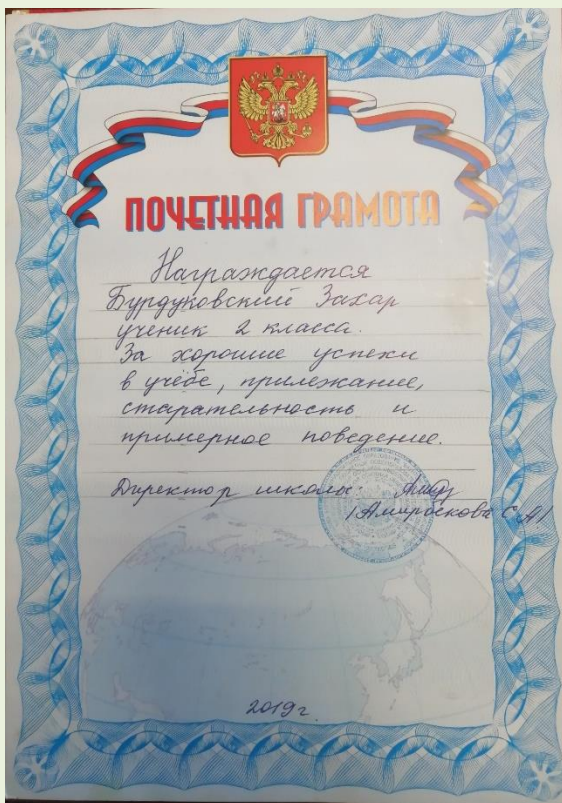 ПОЧЕТНАЯ ГРАМОТА
Награждается
Бурдуковский Захар
ученик 2 класса.
За хорошие успехи
в учёбе, прилежание,
старательность и
примерное поведение.
Директор школы:
2019г.